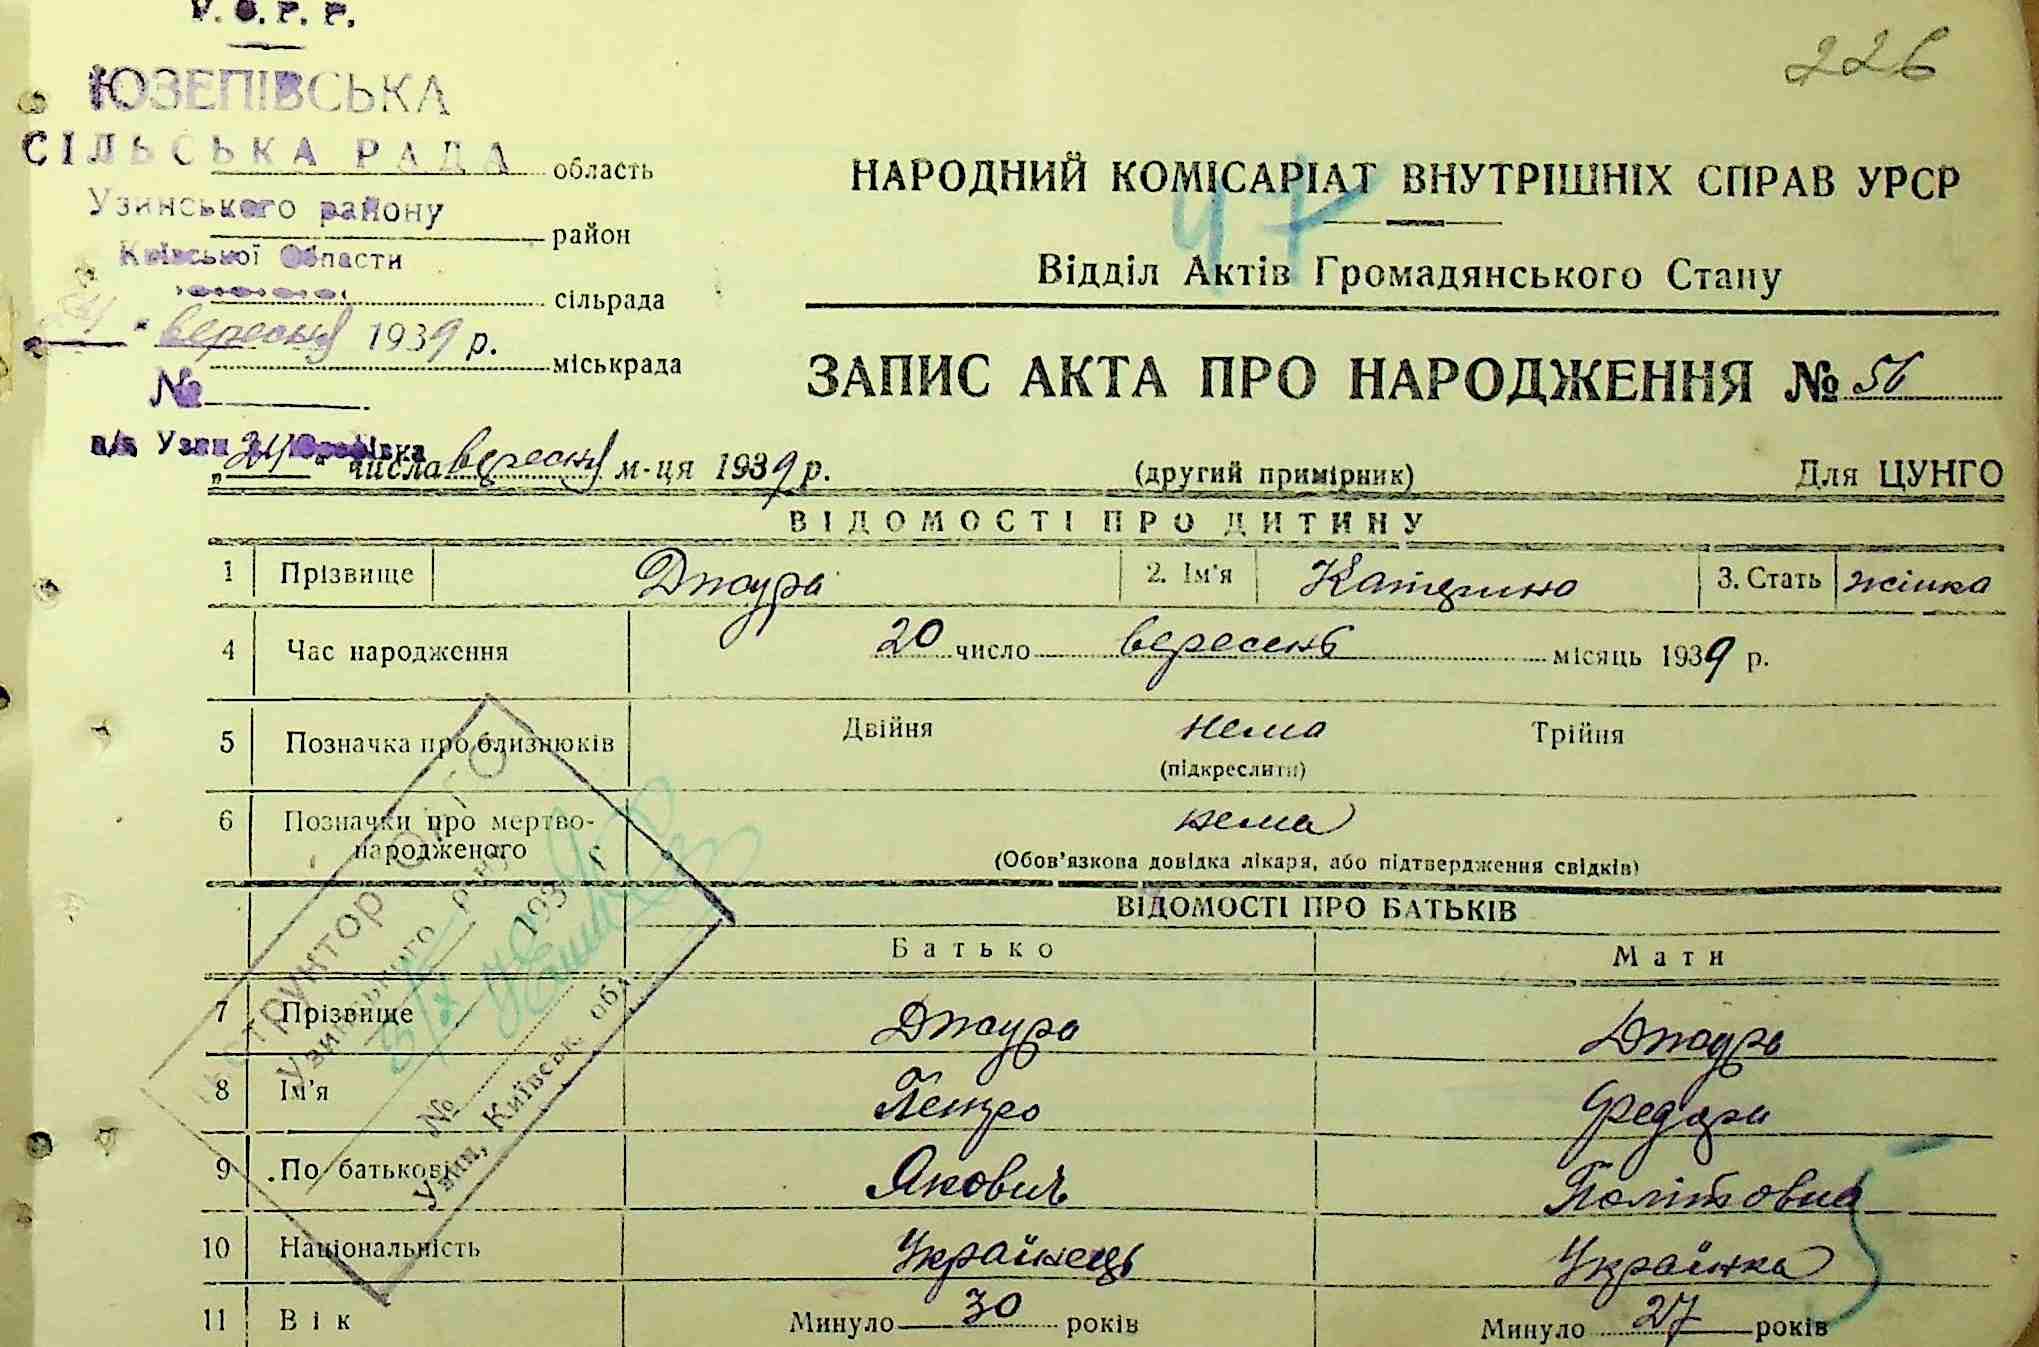 У. С. Р. Р.
226
ЮЗЕПІВСЬКА
СІЛЬСЬКА РАДА область
Узинського району
район
Київської Області
сільрада
24 " вересня 1939 р.
міськрада
№
НАРОДНИЙ КОМІСАРІАТ ВНУТРІШНІХ СПРАВ УРСР
47
Відділ Актів Громадянського Стану
ЗАПИС АКТА ПРО НАРОДЖЕННЯ № 56
п/в Узин с. Юзефівка
„24" числа вересня м-ця 1939 р. (другий примірник) Для ЦУНГО
ВІДОМОСТІ ПРО ДИТИНУ
1 Прізвище Джура 2. Ім'я Катерина 3. Стать жінка
4 Час народження 20 число вересень місяць 1939 р.
5 Позначка про близнюків Двійня нема Трійня
(підкреслити)
6 Позначки про мертво-
народженого нема
(Обов'язкова довідка лікаря, або підтвердження свідків)
ВІДОМОСТІ ПРО БАТЬКІВ
Батько Мати
7 Прізвище Джура Джура
8 Ім'я Петро Федора
9 По батькові Якович Політовна
10 Національність Українець Українка
11 Вік Минуло 30 років Минуло 27 років
Інструктор ОАГС
Узинського р-ну
3/X 193 р.
№
Узин, Київськ. обл.